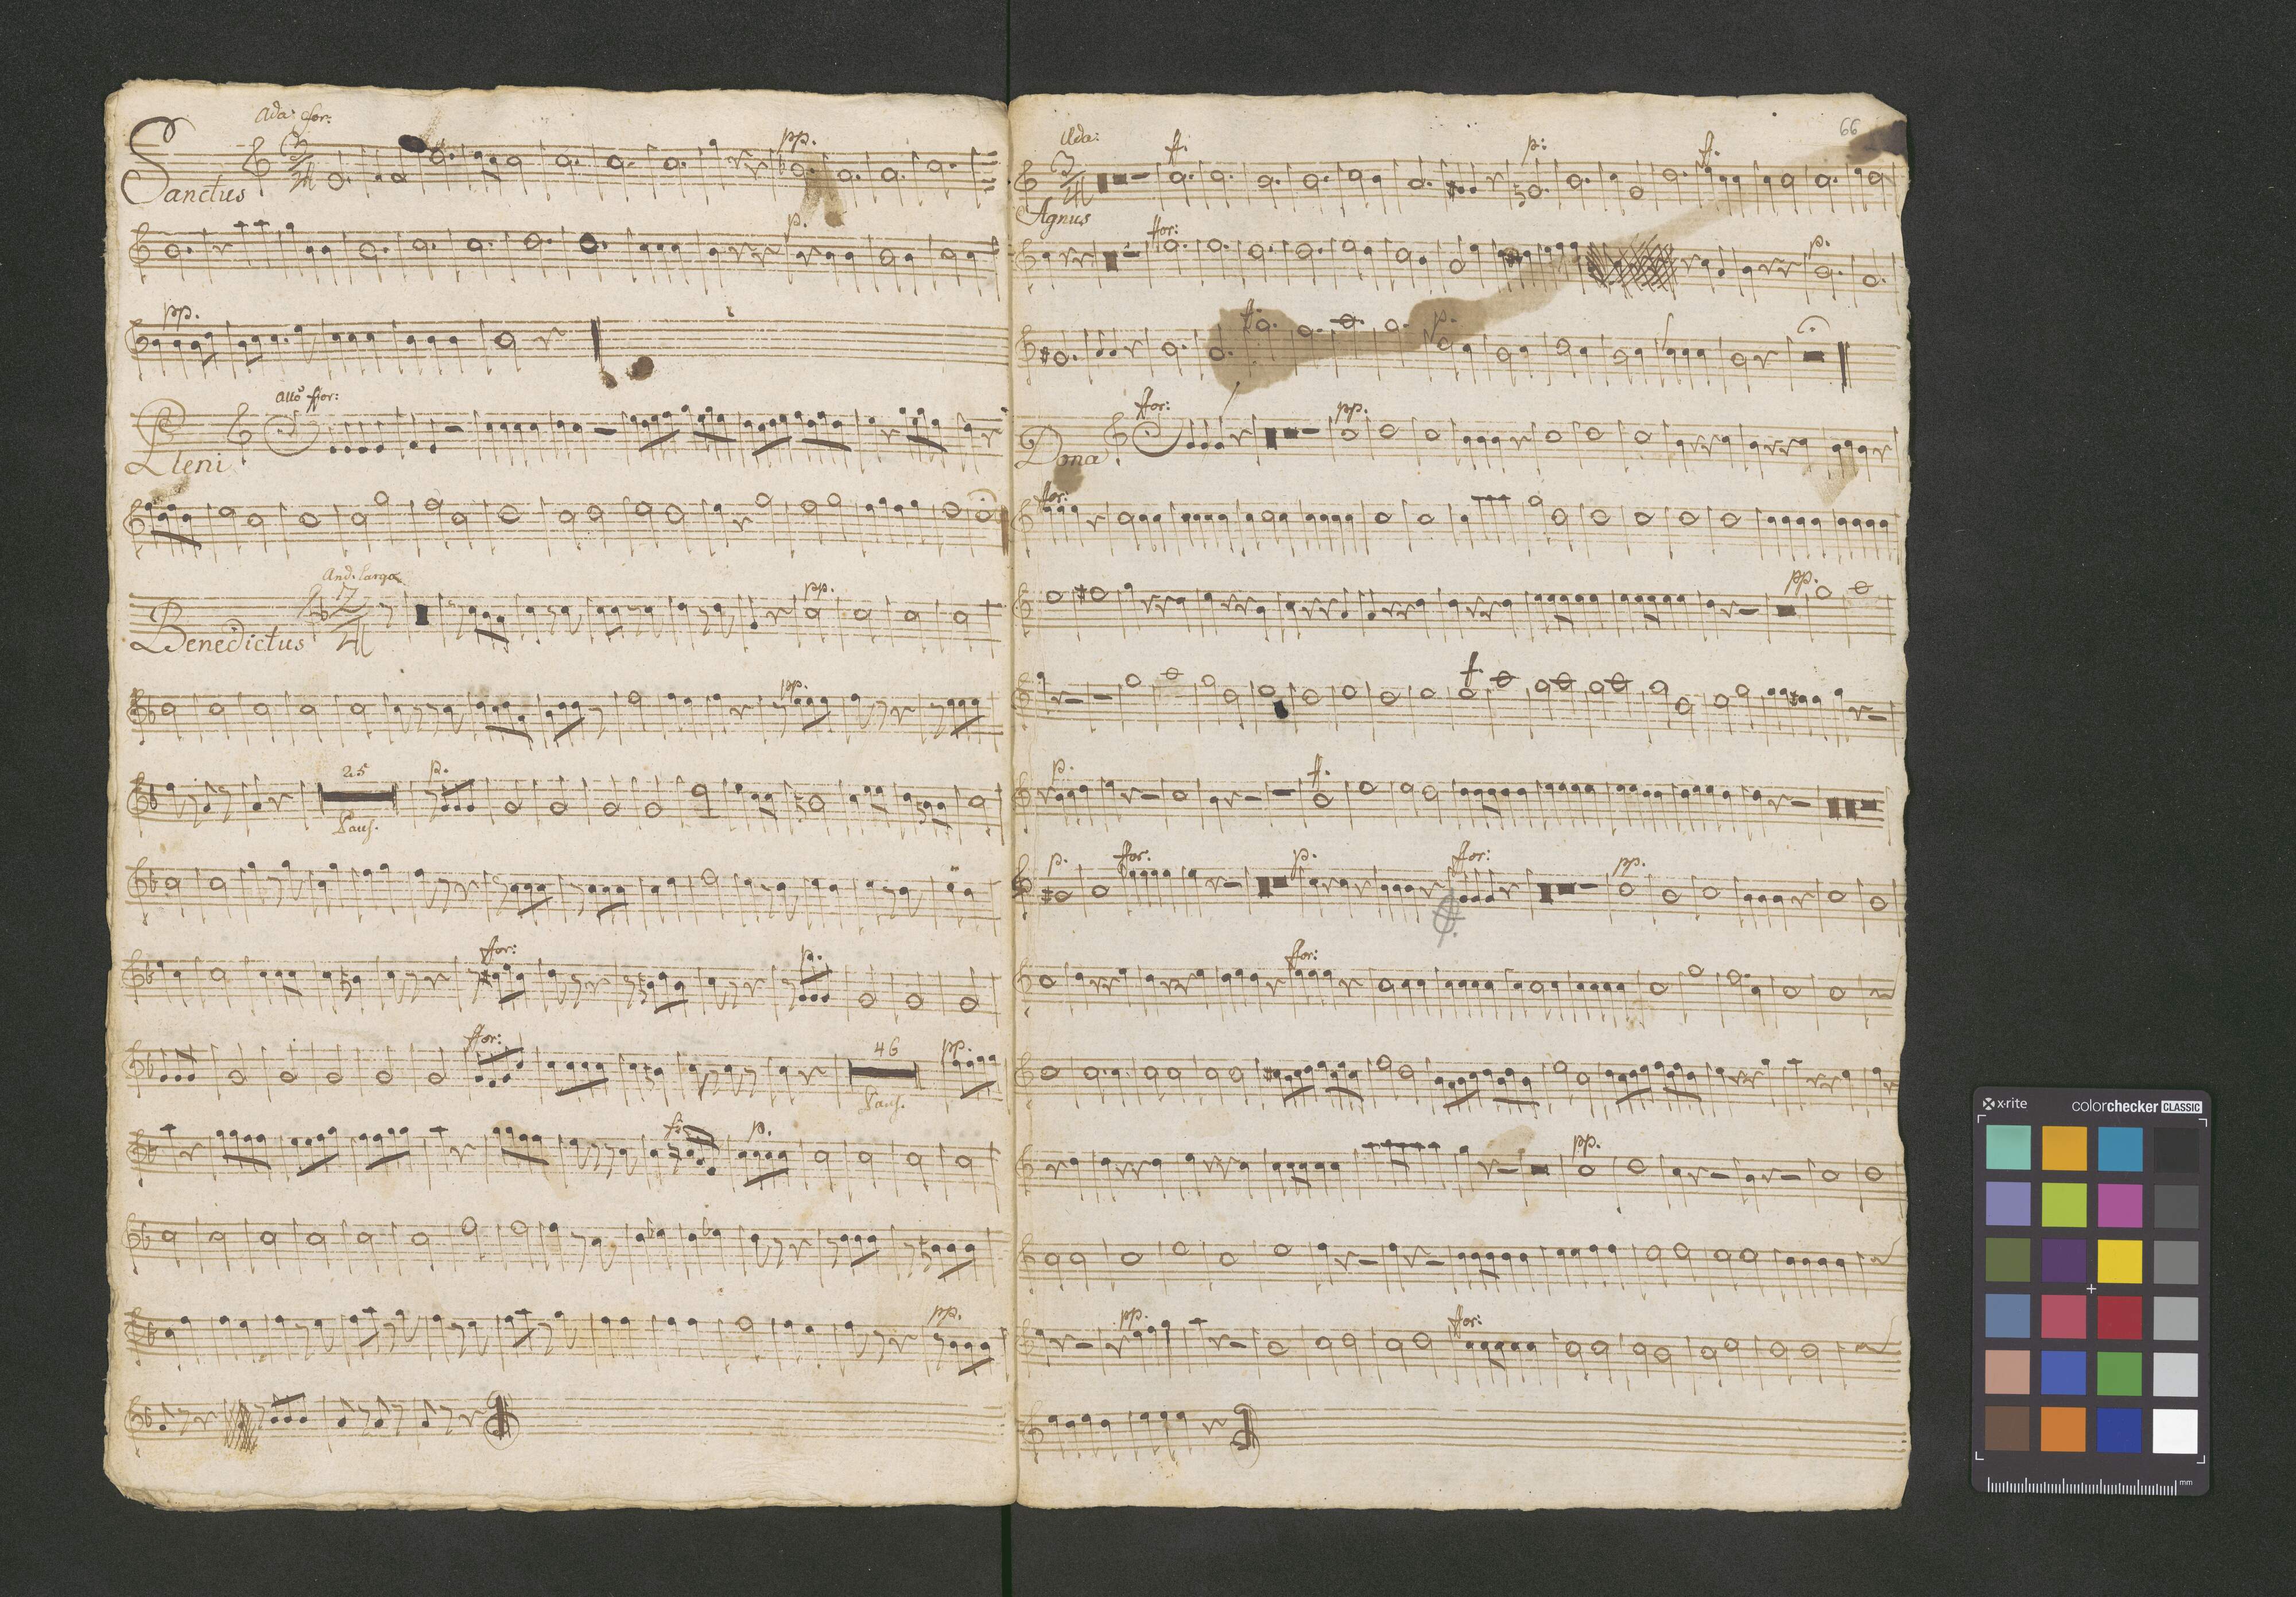 Ada: for:
pp.
Sanctus
p.
pp.
Allo ffor:
Pleni
And. largo
pp.
Benedictus
pp.
25
p.
Paus.
ffor:
p.
ffor:
46
pp.
Paus.
p.
pp.
66
Ada:
ff.
p:
ff.
Agnus
ffor:
p.
ff.
p.
ffor:
pp.
Dona
ffor:
pp.
f.
p.
ff.
p.
ffor:
p.
ffor:
pp.
ffor:
pp.
pp.
ffor:
x-rite
colorchecker CLASSIC
mm